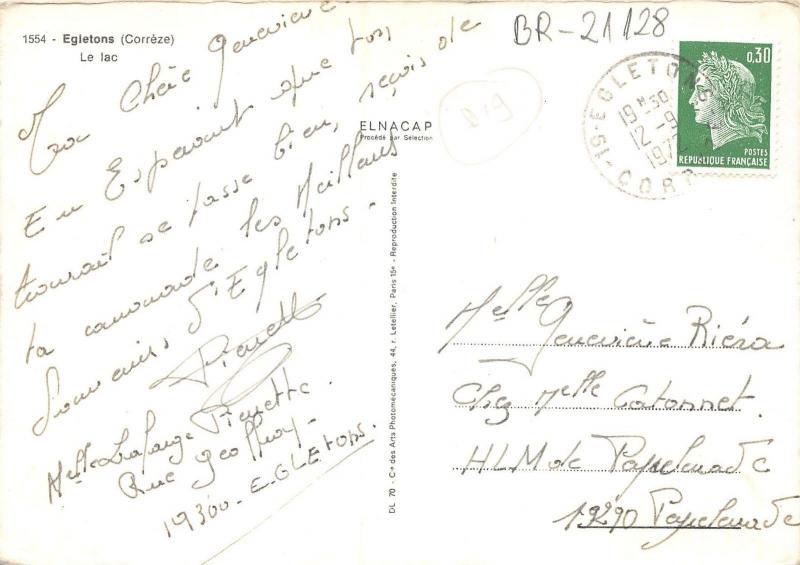 1554 - Egletons (Corrèze)
Le lac
Ma Chère Geneviève.
En Espérant que ton
travail se passe bien, reçois de
ta camarade les Meilleurs
Souvenirs d'Egletons.
Pierrette
Melle Lafarge Pierrette.
Rue Geoffroy.
19300 - EGLETONS.
ELNACAP
Procédé par Sélection
DL 70 - Cie des Arts Photomécaniques, 44, r. Letellier, Paris 15e - Reproduction Interdite
BR-21128
D19
19-EGLETONS
19H30
12-9
197
CORR
0,30
POSTES
REPUBLIQUE FRANÇAISE
Melle Geneviève Riéra
Chez Melle Catonnet.
HLM de Peyrelevade
19290 Peyrelevade